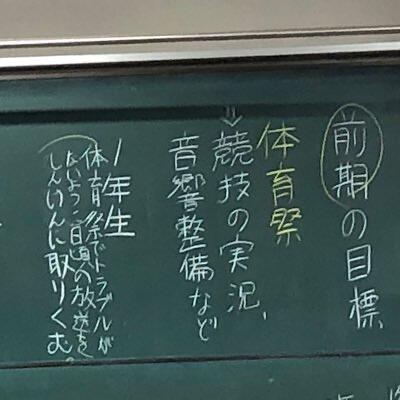 前期の目標
体育祭
⇒競技の実況、
音響整備など
1年生
体育祭でトラブルが
ないように日頃の放送を
しんけんに取りくむ。